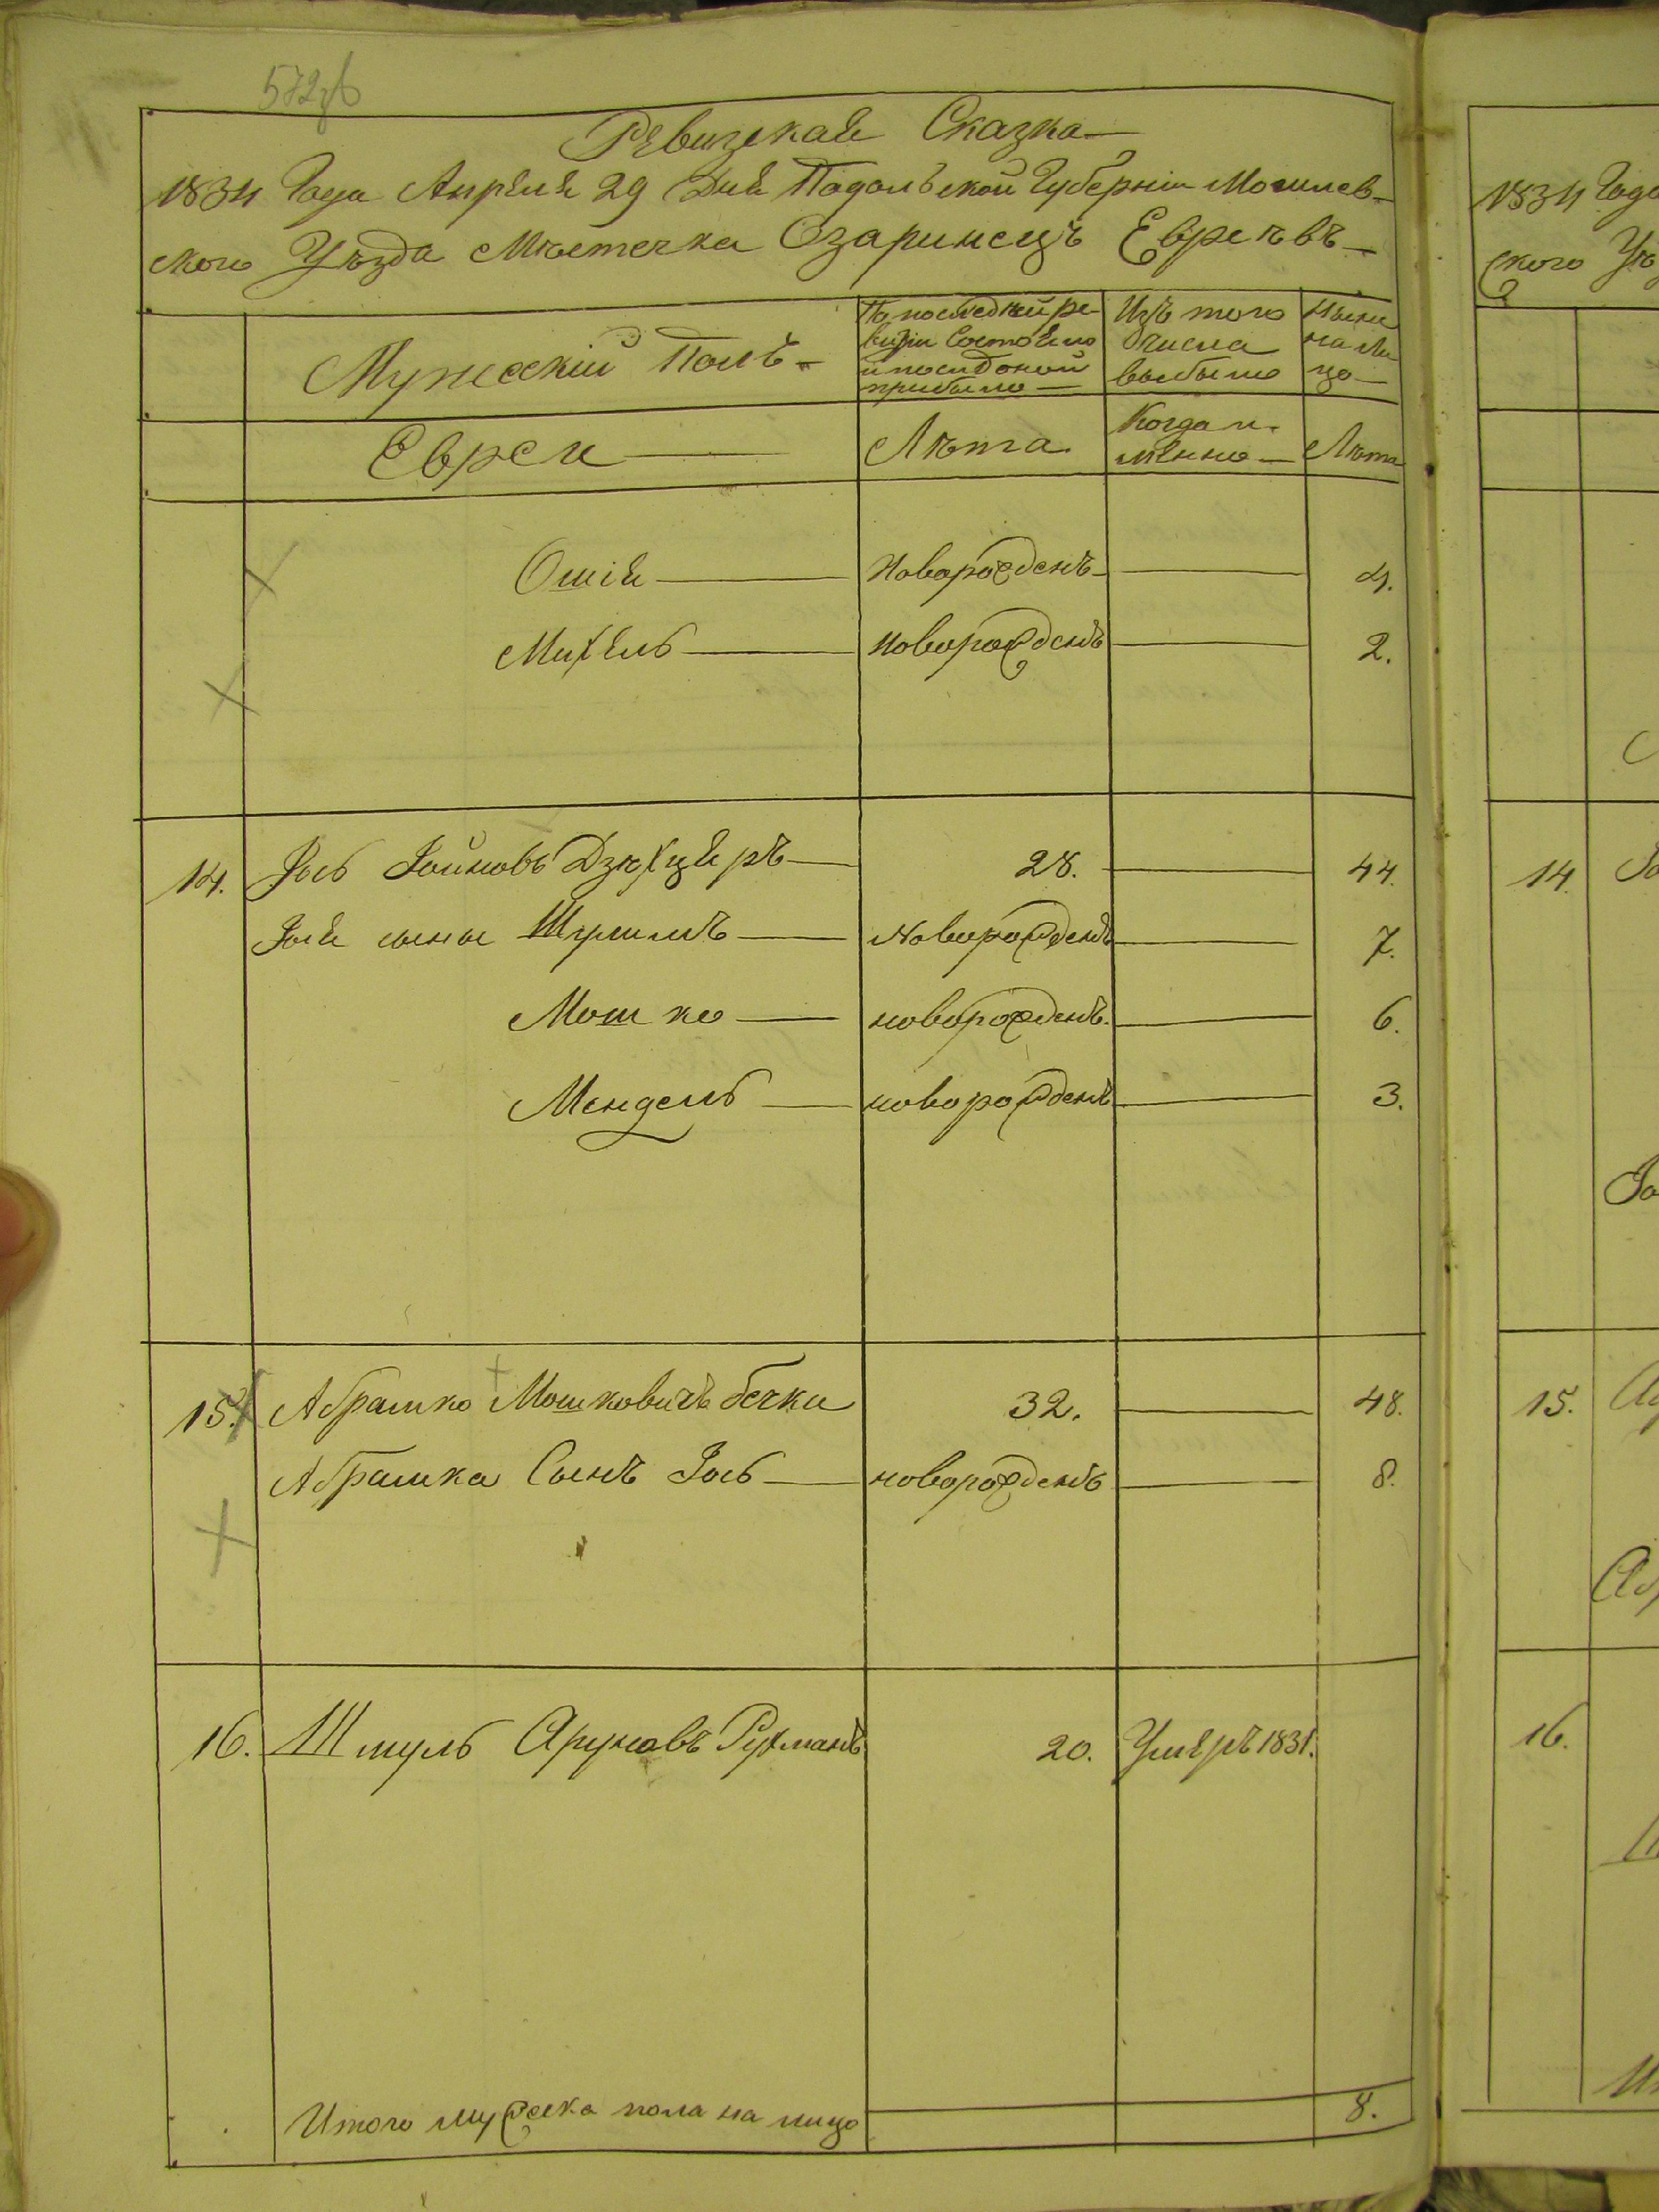 572 об
Ревизская Сказка
1834 Года Апреля 29 Дня Подольской Губерніи Могилев-
ского Уѣзда Мѣстечка Озаринецъ Евреѣвъ
Мужескій Полъ
По последней ре-
визіи Состояло
и после оной
прибыло
Изъ того
числа
выбыло
Ныне
на ли
цо
Евреи
Лѣта
Когда и-
мянно
Лѣта
Ошія новорожденъ 4.
Михель новорожденъ 2.
14. Іось Іойновъ Дзюхцеръ 28. 44.
Іося сыны новорожденъ 7.
Мошко новорожденъ 6.
Мендель новорожденъ 3.
15. Абрамко Мошковичъ Бечки 32. 48.
Абрамка Сынъ Іось новорожденъ 8.
16. Шмуль Аруновъ Рухманъ 20. Умеръ 1831.
Итого мужеска пола на лицо 8.
1834 Года
ского Уѣ
14.
15.
16.